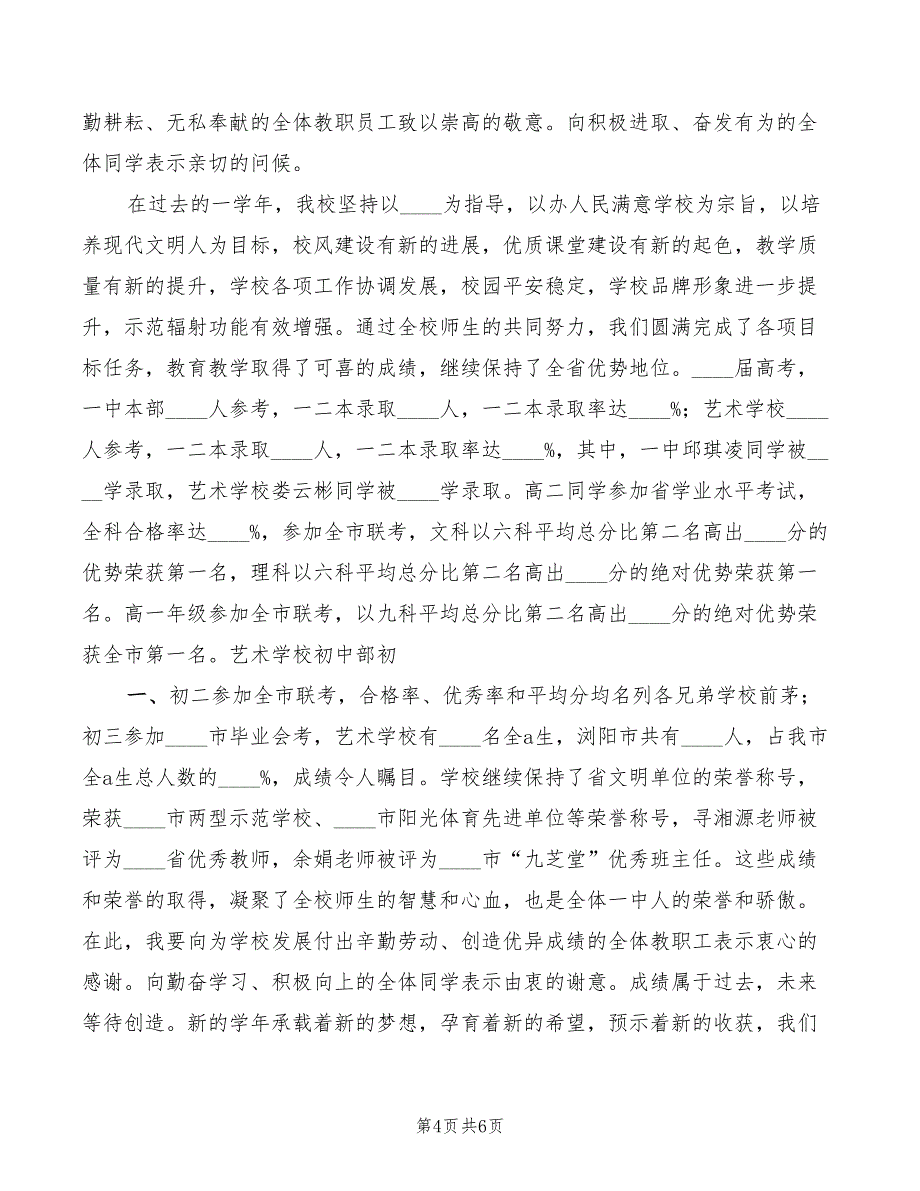 勤耕耘、无私奉献的全体教职员工致以崇高的敬意。向积极进取、奋发有为的全
体同学表示亲切的问候。
在过去的一学年，我校坚持以____为指导，以办人民满意学校为宗旨，以培
养现代文明人为目标，校风建设有新的进展，优质课堂建设有新的起色，教学质
量有新的提升，学校各项工作协调发展，校园平安稳定，学校品牌形象进一步提
升，示范辐射功能有效增强。通过全校师生的共同努力，我们圆满完成了各项目
标任务，教育教学取得了可喜的成绩，继续保持了全省优势地位。____届高考，
一中本部____人参考，一二本录取____人，一二本录取率达____%；艺术学校____
人参考，一二本录取____人，一二本录取率达____%，其中，一中邱琪凌同学被__
__学录取，艺术学校娄云彬同学被____学录取。高二同学参加省学业水平考试，
全科合格率达____%，参加全市联考，文科以六科平均总分比第二名高出____分的
优势荣获第一名，理科以六科平均总分比第二名高出____分的绝对优势荣获第一
名。高一年级参加全市联考，以九科平均总分比第二名高出____分的绝对优势荣
获全市第一名。艺术学校初中部初
一、初二参加全市联考，合格率、优秀率和平均分均名列各兄弟学校前茅；
初三参加____市毕业会考，艺术学校有____名全a生，浏阳市共有____人，占我市
全a生总人数的____%，成绩令人瞩目。学校继续保持了省文明单位的荣誉称号，
荣获____市两型示范学校、____市阳光体育先进单位等荣誉称号，寻湘源老师被
评为____省优秀教师，余娟老师被评为____市“九芝堂”优秀班主任。这些成绩
和荣誉的取得，凝聚了全校师生的智慧和心血，也是全体一中人的荣誉和骄傲。
在此，我要向为学校发展付出辛勤劳动、创造优异成绩的全体教职工表示衷心的
感谢。向勤奋学习、积极向上的全体同学表示由衷的谢意。成绩属于过去，未来
等待创造。新的学年承载着新的梦想，孕育着新的希望，预示着新的收获，我们
第4页 共6页